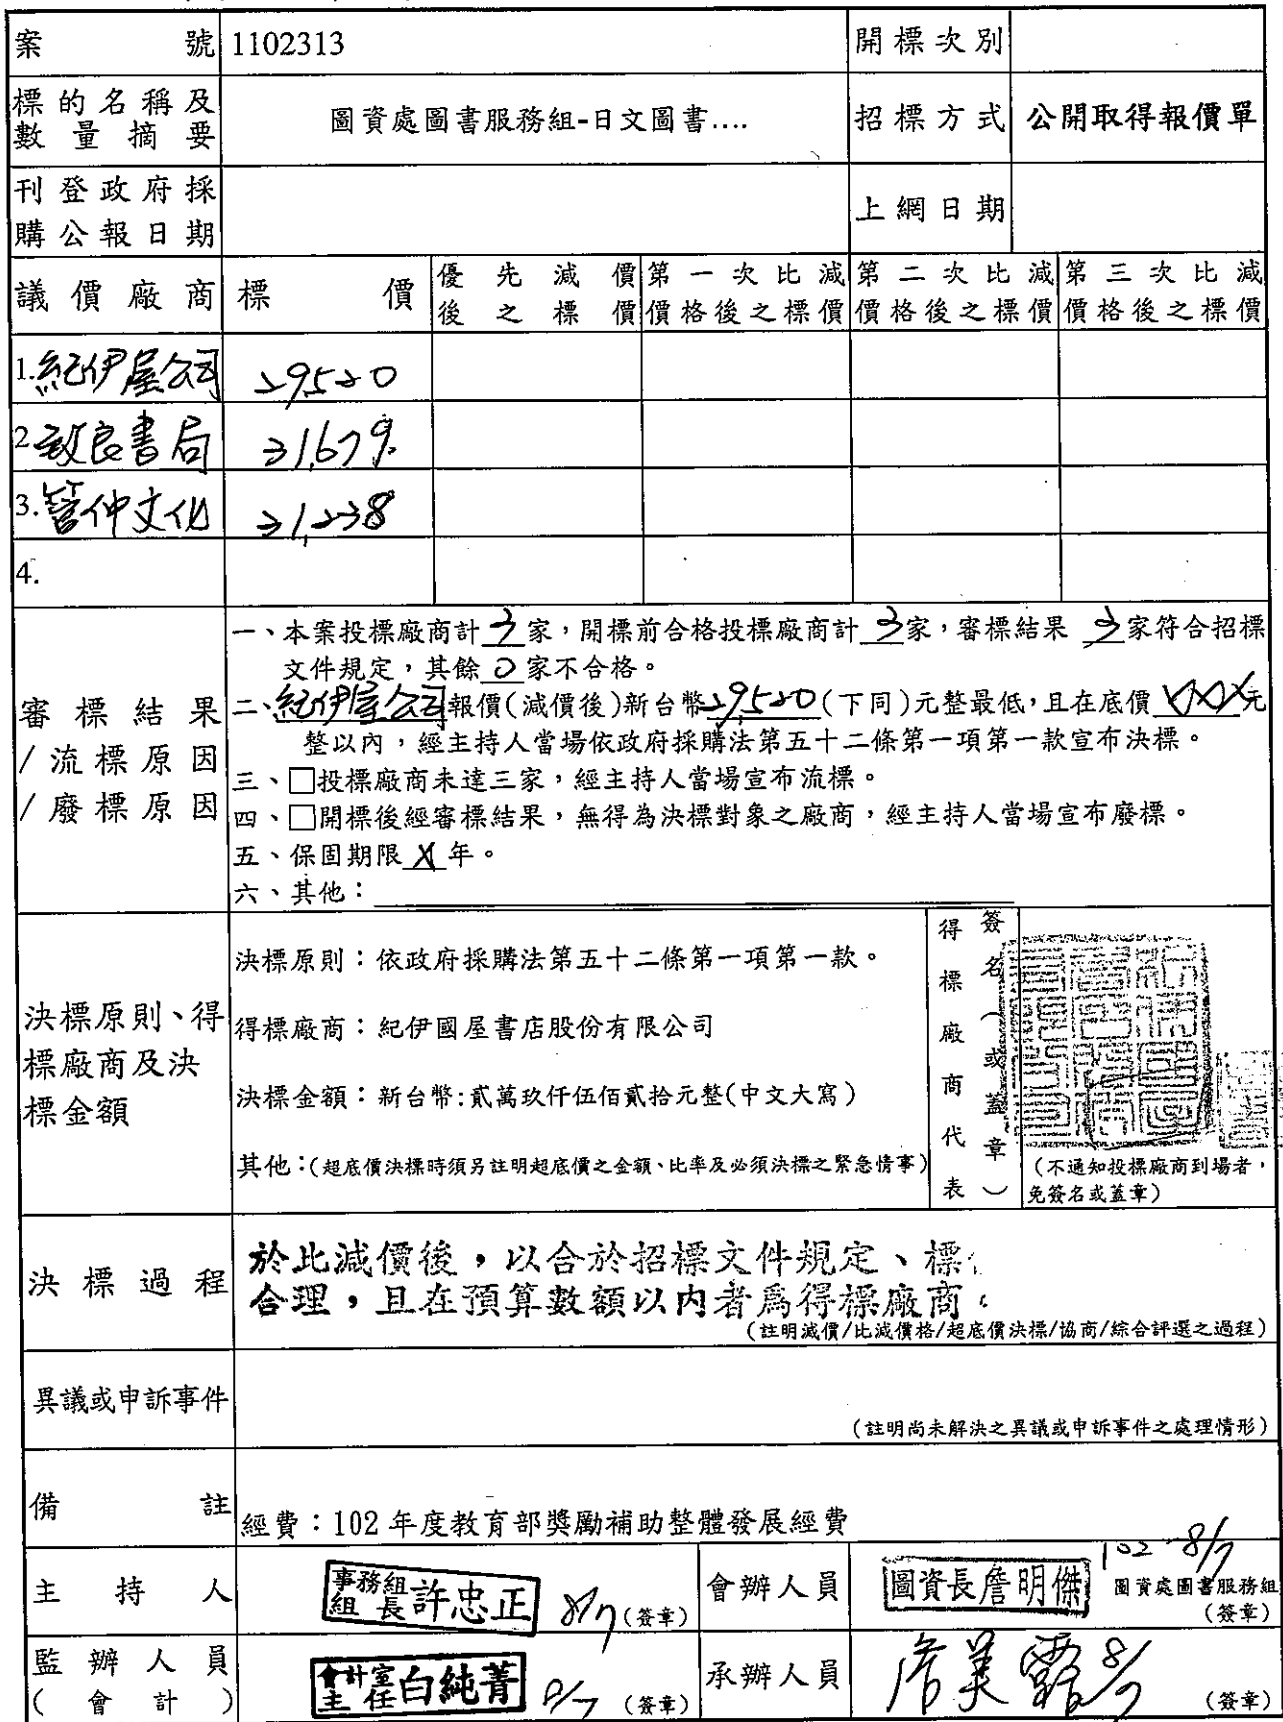 案號 1102313 開標次別
標的名稱及數量摘要 圖資處圖書服務組-日文圖書.... 招標方式 公開取得報價單
刊登政府採購公報日期 上網日期
議價廠商 標價 優先減價後之標價 第一次比減價格後之標價 第二次比減價格後之標價 第三次比減價格後之標價
1.紀伊屋公司 29,520
2 致良書局 31,679.
3.管仲文化 31,238
4.
審標結果/流標原因/廢標原因
一、本案投標廠商計 3 家，開標前合格投標廠商計 3 家，審標結果 3 家符合招標
文件規定，其餘 0 家不合格。
二、紀伊屋公司報價(減價後)新台幣29,520(下同)元整最低，且在底價 XXX 元
整以內，經主持人當場依政府採購法第五十二條第一項第一款宣布決標。
三、□投標廠商未達三家，經主持人當場宣布流標。
四、□開標後經審標結果，無得為決標對象之廠商，經主持人當場宣布廢標。
五、保固期限 X 年。
六、其他：
決標原則、得標廠商及決標金額
決標原則：依政府採購法第五十二條第一項第一款。
得標廠商：紀伊國屋書店股份有限公司
決標金額：新台幣:貳萬玖仟伍佰貳拾元整(中文大寫)
其他：(超底價決標時須另註明超底價之金額、比率及必須決標之緊急情事)
得標廠商代表
簽名（或蓋章）
(不通知投標廠商到場者，
免簽名或蓋章)
決標過程
於比減價後，以合於招標文件規定、標
合理，且在預算數額以內者為得標廠商。
(註明減價/比減價格/超底價決標/協商/綜合評選之過程)
異議或申訴事件
(註明尚未解決之異議或申訴事件之處理情形)
備註 經費：102 年度教育部獎勵補助整體發展經費
主持人 事務組組長 許忠正 8/7 (簽章) 會辦人員 圖資長詹明傑 102 8/7 圖資處圖書服務組 (簽章)
監辦人員(會計) 會計室主任 白純菁 8/7 (簽章) 承辦人員 詹美霞 8/7 (簽章)